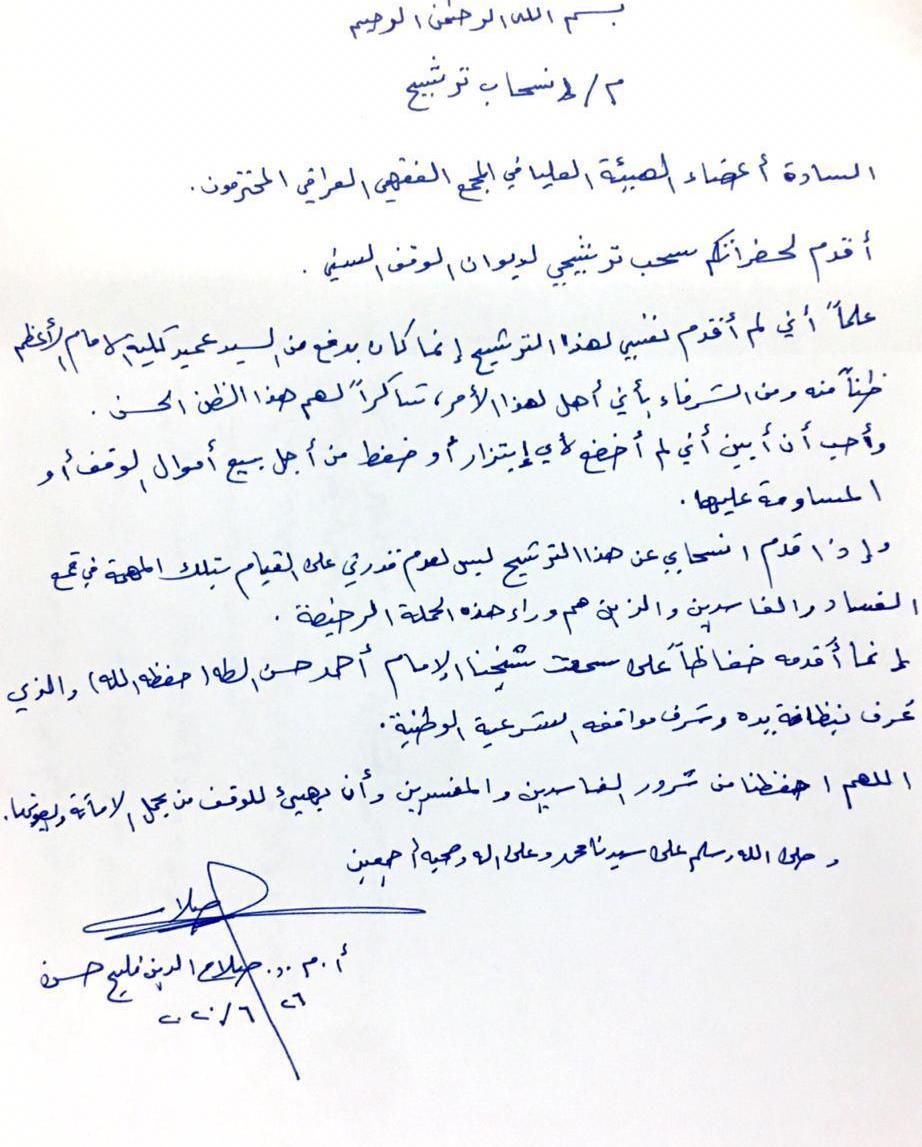 بسم الله الرحمن الرحيم
م/ انسحاب ترشيح
السادة أعضاء الهيئة العليا في المجمع الفقهي العراقي المحترمون.
أقدم لحضراتكم سحب ترشيحي لديوان الوقف السني .
علماً أني لم أقدم نفسي لهذا الترشيح إنما كان بدفع من السيد عميد كلية الامام الأعظم
ظناً منه ومن الشرفاء بأني أهل لهذا الأمر، شاكراً لهم هذا الظن الحسن .
وأحب أن أبين أني لم أخضع لأي إبتزاز أو ضغط من أجل بيع أموال الوقف أو
المساومة عليها.
وإذ اقدم انسحابي عن هذا الترشيح ليس لعدم قدرتي على القيام بتلك المهمة في قمع
الفساد والفاسدين والذين هم وراء هذه الحملة الرخيصة .
إنما أقدمه حفاظاً على سمعت شيخنا الإمام أحمد حسن الطه (حفظه الله) والذي
عُرف بنظافة يده وشرف مواقفه الشرعية الوطنية.
اللهم احفظنا من شرور الفاسدين والمفسدين وأن يهيئ للوقف من يحمل الامانة ويصونها.
وصلى الله وسلم على سيدنا محمد وعلى اله وصحبه أجمعين
صلاح
أ.م.د. صلاح الدين فليح حسن
٢٦/٦/٢٠٢٠